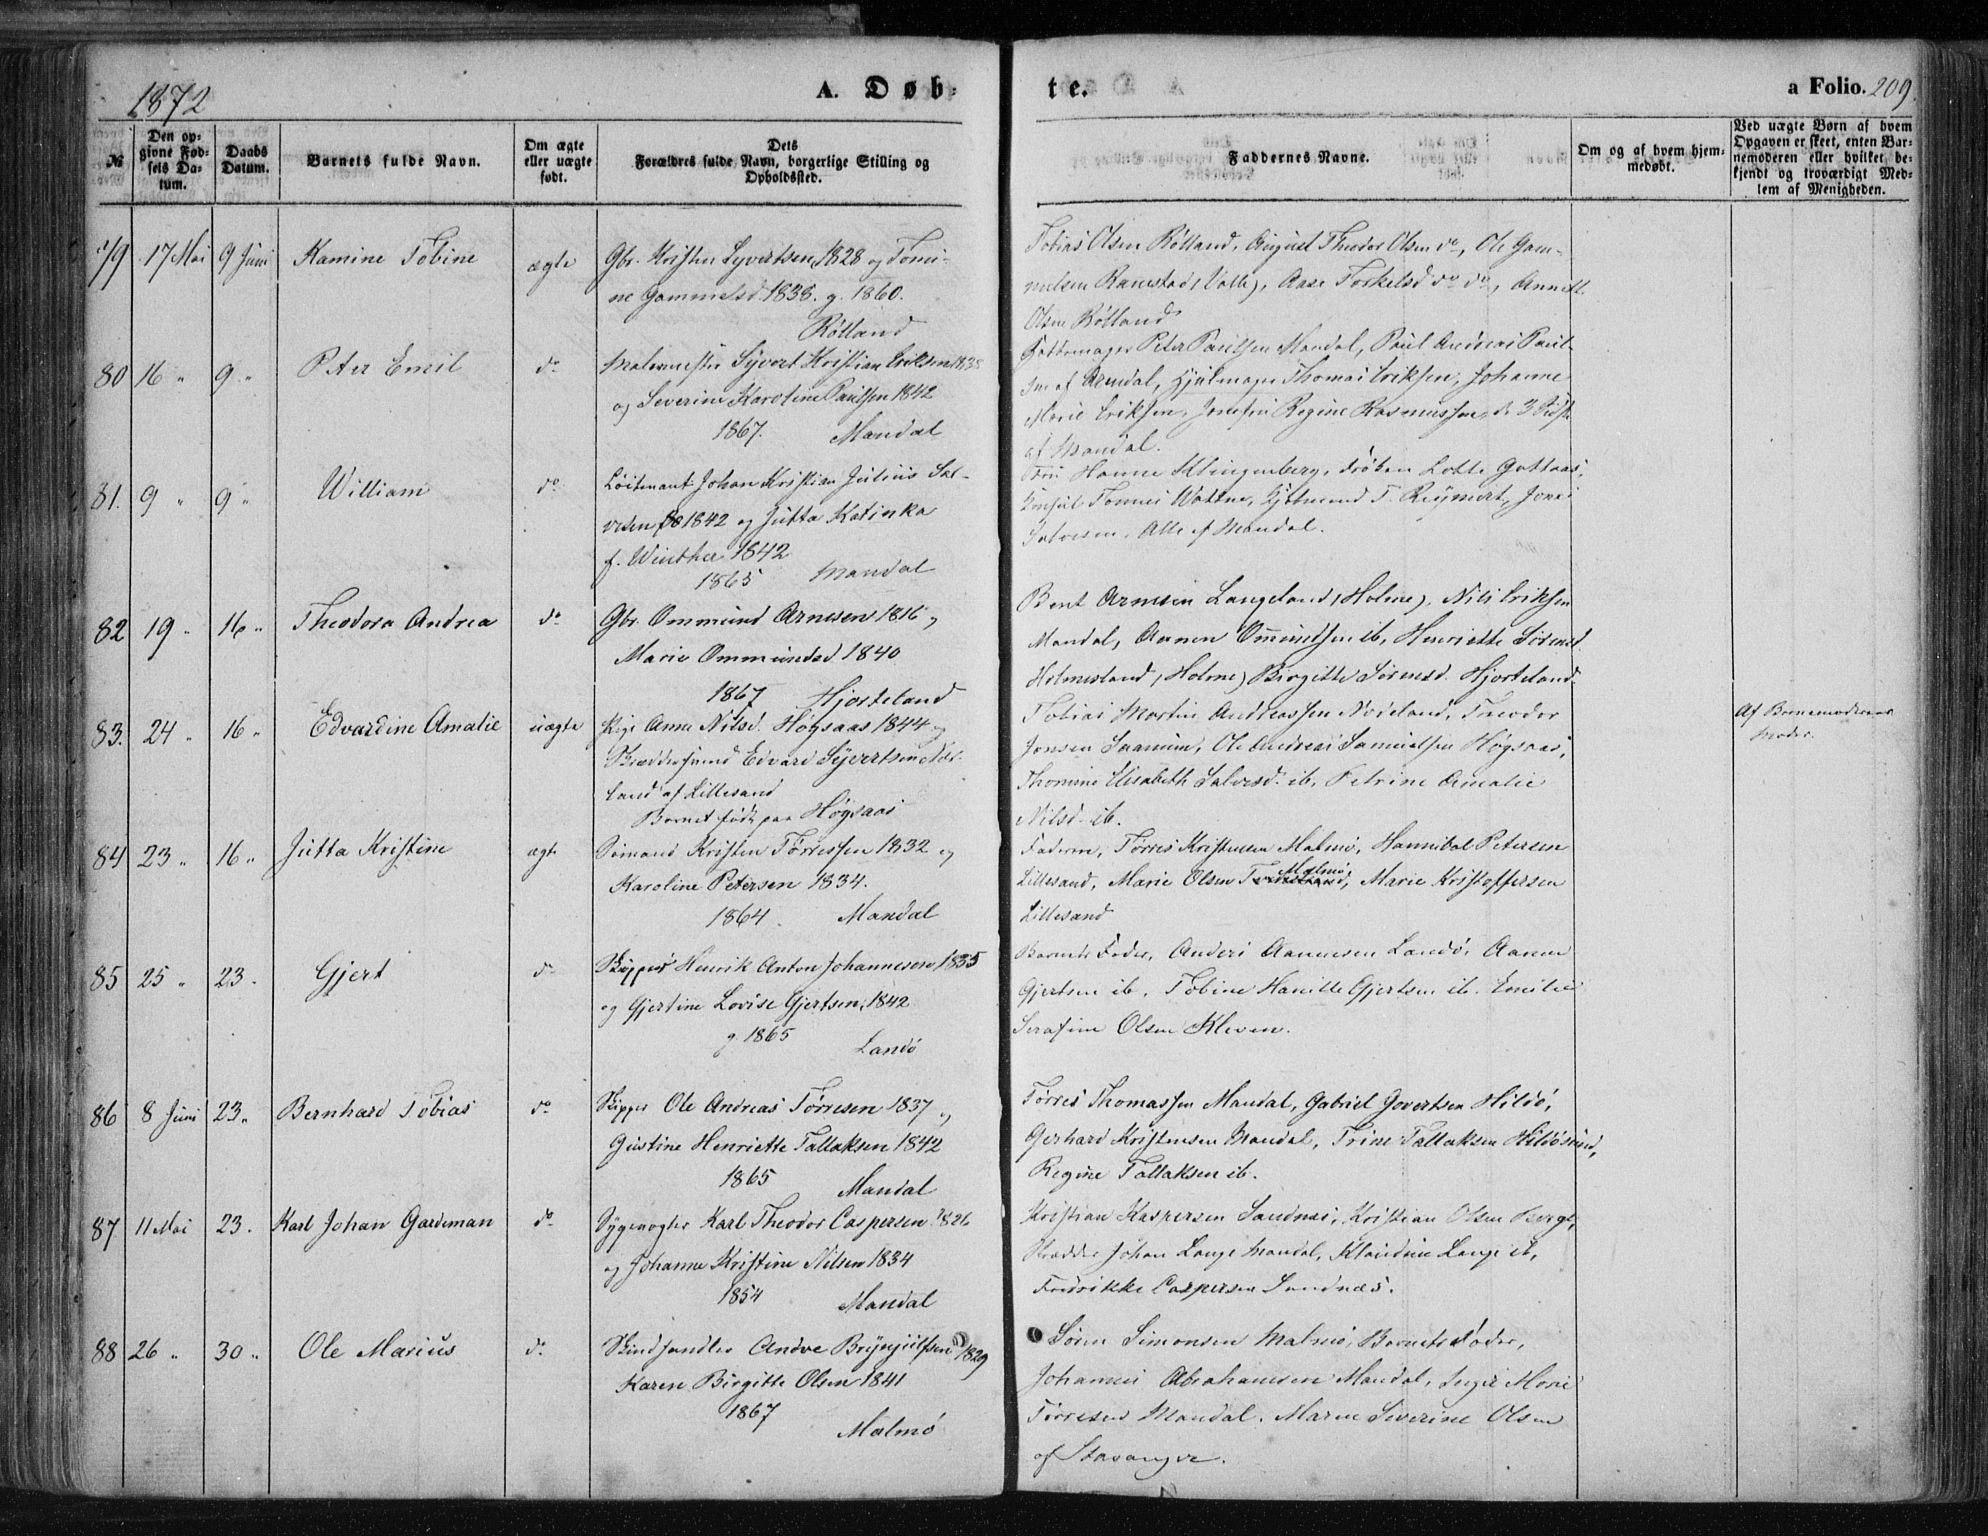 1872
A. Døb-
te.
a Folio. 209.
№
Den op-
givne Fød-
sels Da-
tum.
Daabs
Datum.
Barnets fulde Navn.
Om ægte
eller uægte
født.
Dets
Forældres fulde Navn, borgerlige Stilling og
Opholdssted.
Faddernes Navne.
Om og af hvem hjem-
medøbt.
Ved uægte Børn af hvem
Opgaven er skeet, enten Bar-
nemoderen eller hvilket be-
kjendt og troværdigt Med-
lem af Menigheden.
79 17 Mai 9 Juni Kamine Tobine ægte Gbr. Kristen Syvertsen 1828 og Tomi-
ne Gammelsd. 1838. g. 1860.
Rölland
Tobias Olsen Rölland, August Theodor Olsen do, Ole Gam-
melsen Ramstad (Valle), Aase Torkelsd do do, Annett
Olsen Rölland
80 16 " 9 " Peter Emil do Malermester Syvert Kristian Eriksen 1838
og Severine Karoline Paulsen 1842
1867. Mandal
Peter Paulsen Mandal, Paul Andreas Paul-
sen af Arendal, Hjulmager Thomas Eriksen, Johanne
Marie Eriksen, Josefine Regine Rasmussen, de 3 sidste
af Mandal.
81. 9 " 9 " William do Löitenant Johan Kristian Julius Sal-
vesen 1842 og Jutta Katinka
f. Winther 1842
1865 Mandal
Fru Hanne Klingenberg, Fröken Lotte Gottaas,
Konsul Tönnes Wattne, Kjöbmand T. Reymert, Jones
Salvesen. Alle af Mandal.
82 19 " 16 " Theodora Andrea do Gbr. Ommund Arnesen 1816 og
Marie Ommundsd 1840
1867 Hjorteland
Bent Arnesen Langeland (Holme), Nils Eriksen
Mandal, Aanen Omundsen ib, Henriette Sörensd
Holmesland (Holme) Birgitte Sörensd. Hjorteland.
83. 24 " 16 " Edvardine Amalie uægte Pige Anne Nilsd. Högsaas 1844 og
Edvard Syvertsen
land af Lillesand
Barnet født paa Høgsaas
Tobias Martin Andreassen Nodeland, Theodor
Jonsen Saanum, Ole Andreas Samuelsen Högsaas,
Thomine Elisabeth Salvesd. ib, Petrine Amalie
Nilsd. ib.
Af Barnemoderens
Moder.
84 23 " 16 " Jutta Kristine ægte Sömand Kristen Törressen 1832 og
Karoline Petersen 1834.
1864. Mandal
Faderen, Törres Kristensen Malmö, Hannibal Petersen
Lillesand, Marie Olsen Malmö, Marie Kristoffersen
Lillesand
85 25 " 23 " Gjert do Skipper Henrik Anton Johannesen 1835
og Gjertine Lovise Gjertsen, 1842
g. 1865 Landö
Barnets Fader, Anders Aanensen Landö, Aanen
Gjertsen ib. Tobine Hamille Gjertsen ib. Emilie
Serafine Olsen Kleven.
86 8 Juni 23 " Bernhard Tobias do Skipper Ole Andreas Törresen 1837 og
Gustine Henriette Tallaksen 1842
1865 Mandal
Törres Thomassen Mandal, Gabriel Govertsen Hildö,
Gerhard Kristensen Mandal, Trine Tallaksen Hildösund,
Regine Tallaksen ib.
87 11 Mai 23. Karl Johan Gardeman do Sygevogter Karl Theodor Caspersen 1826
og Johanne Kristine Nilsen 1834
1854 Mandal
Kristian Kaspersen Sandnæs, Kristian Olsen Berge,
Johan Lange Mandal, Klaudine Lange ib,
Fredrikke Caspersen Sandnæs.
88 26 " 30 " Ole Marius do Skindhandler Andve Brynjulfsen 1829
Karen Birgitte Olsen 1841
1867 Malmö
Sören Simonsen Malmö, Barnets Fader,
Johannes Abrahamsen Mandal, Inger Marie
Törresen Mandal, Marne Severine Olsen
af Stavanger.